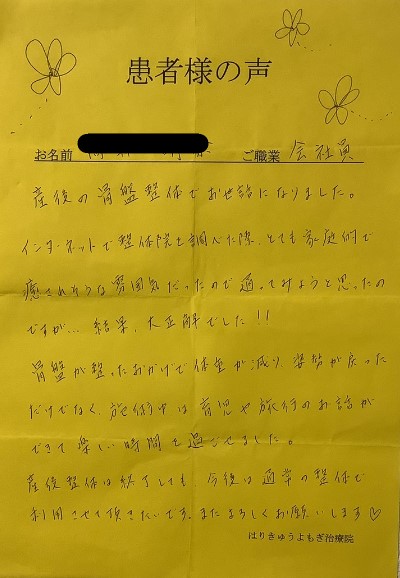 患者様の声
お名前 ご職業 会社員
産後の骨盤整体でお世話になりました。
インターネットで整体院を調べた際、とても家庭的で
癒されそうな雰囲気だったので通ってみようと思ったの
ですが… 結果、大正解でした!!
骨盤が整ったおかげで体重が減り、姿勢が戻った
だけでなく、施術中は育児や旅行のお話が
できて楽しい時間を過ごせました。
産後整体は終了しても、今後は通常の整体で
利用させて頂きたいです。またよろしくお願いします♡
はりきゅうよもぎ治療院